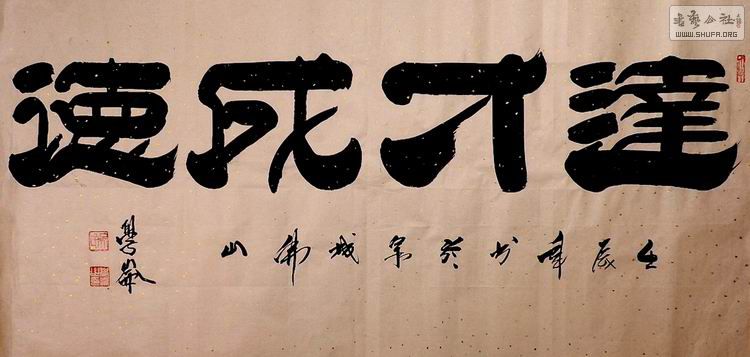 達才成德
壬辰年书於泉城佛山
书艺公社
WWW.SHUFA.ORG